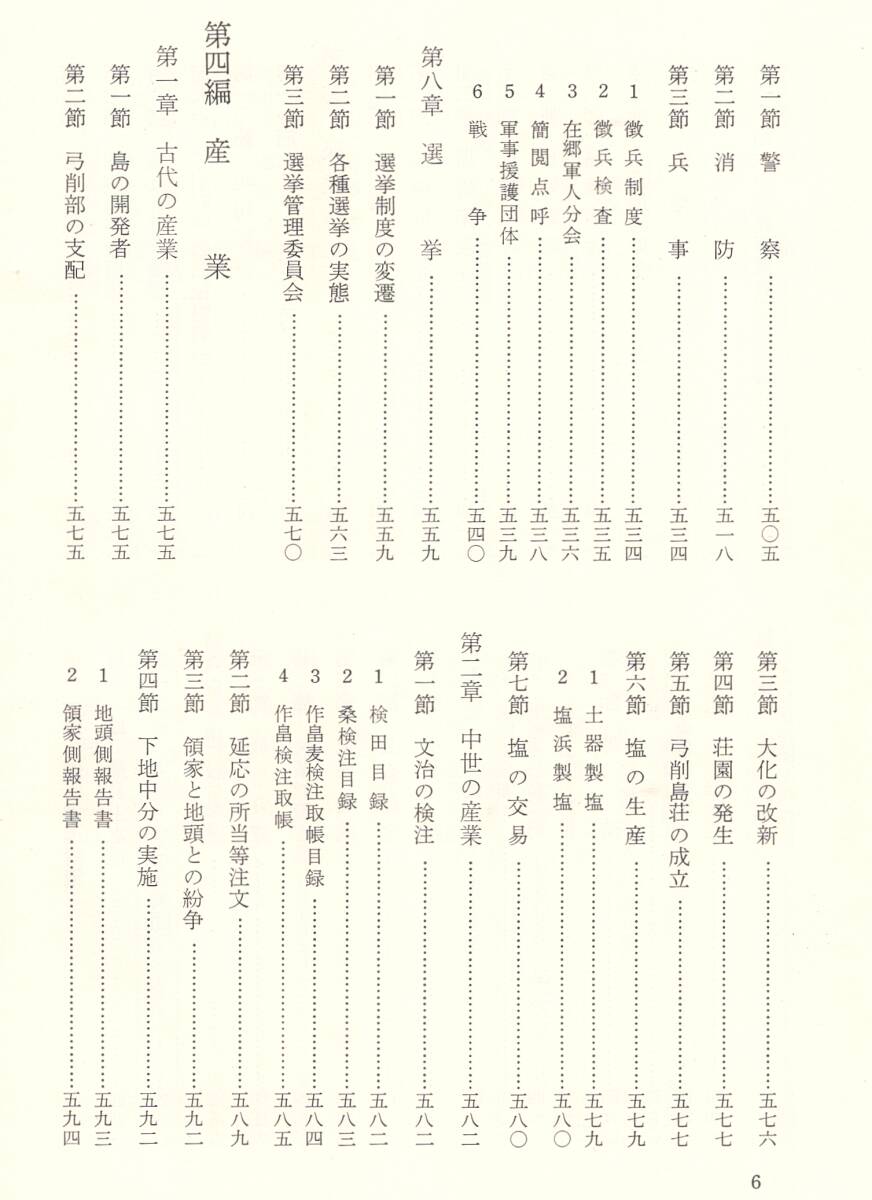 第一節 警察……五〇五
第二節 消防……五一八
第三節 兵事……五三四
1 徴兵制度……五三四
2 徴兵検査……五三五
3 在郷軍人分会……五三六
4 簡閲点呼……五三八
5 軍事援護団体……五三九
6 戦争……五四〇
第八章 選挙……五五九
第一節 選挙制度の変遷……五五九
第二節 各種選挙の実態……五六三
第三節 選挙管理委員会……五七〇
第四編 産業
第一章 古代の産業……五七五
第一節 島の開発者……五七五
第二節 弓削部の支配……五七五
第三節 大化の改新……五七六
第四節 荘園の発生……五七七
第五節 弓削島荘の成立……五七七
第六節 塩の生産……五七九
1 土器製塩……五七九
2 塩浜製塩……五八〇
第七節 塩の交易……五八〇
第二章 中世の産業……五八二
第一節 文治の検注……五八二
1 検田目録……五八二
2 桑検注目録……五八三
3 作畠麦検注取帳目録……五八四
4 作畠検注取帳……五八五
第二節 延応の所当等注文……五八九
第三節 領家と地頭との紛争……五九二
第四節 下地中分の実施……五九二
1 地頭側報告書……五九三
2 領家側報告書……五九四
6